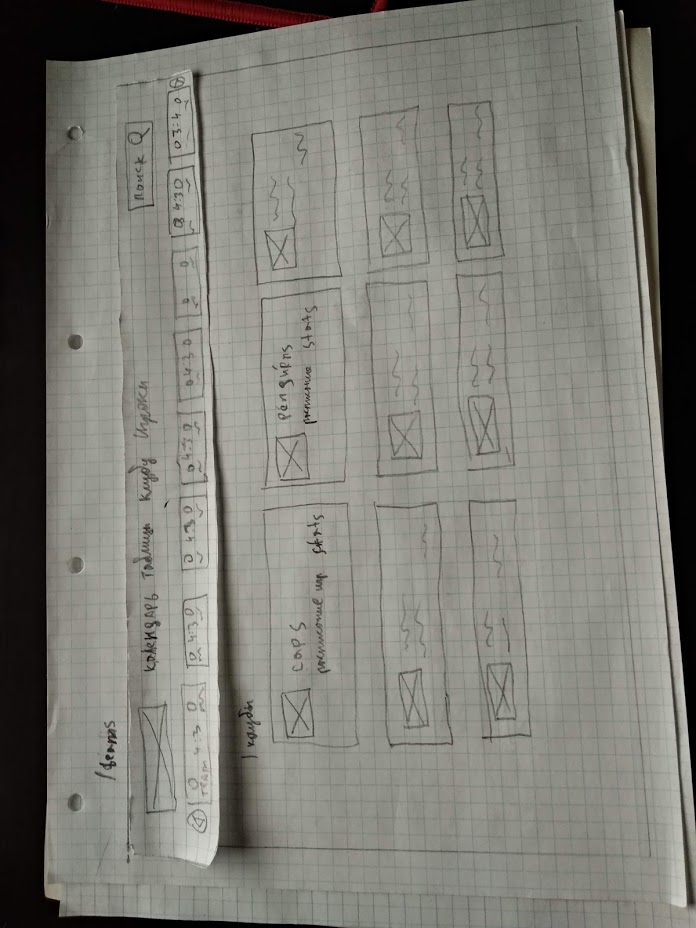 /teams
КАЛЕНДАРЬ Таблицы Клубы Игроки
Поиск
0 4:3 0 0 4:3 0 0 4:3 0 0 4:3 0 0 4:3 0 0 0 0 4:3 0 0 3:4 0
TEAM
/ клубы
caps
расписание игр stats
penguins
расписание stats